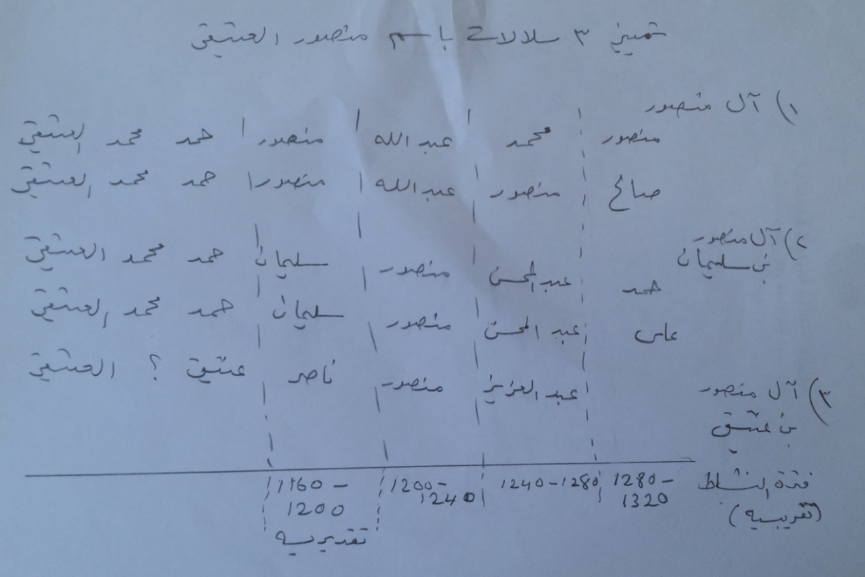 تمييز ٣ سلالات باسم منصور العتيقي
١) آل منصور
منصور محمد عبد الله منصور حمد محمد العتيقي
صالح منصور عبد الله منصور حمد محمد العتيقي
٢) آل منصور
بن سليمان
حمد عبد المحسن منصور سليمان حمد محمد العتيقي
علي عبد المحسن منصور سليمان حمد محمد العتيقي
٣) آل منصور
بن عتيق
عبد العزيز منصور ناصر عتيق ? العتيقي
فترة النشاط
(تقريبية)
1280-1320
1240-1280
1200-1240
1160-1200
تقديرية